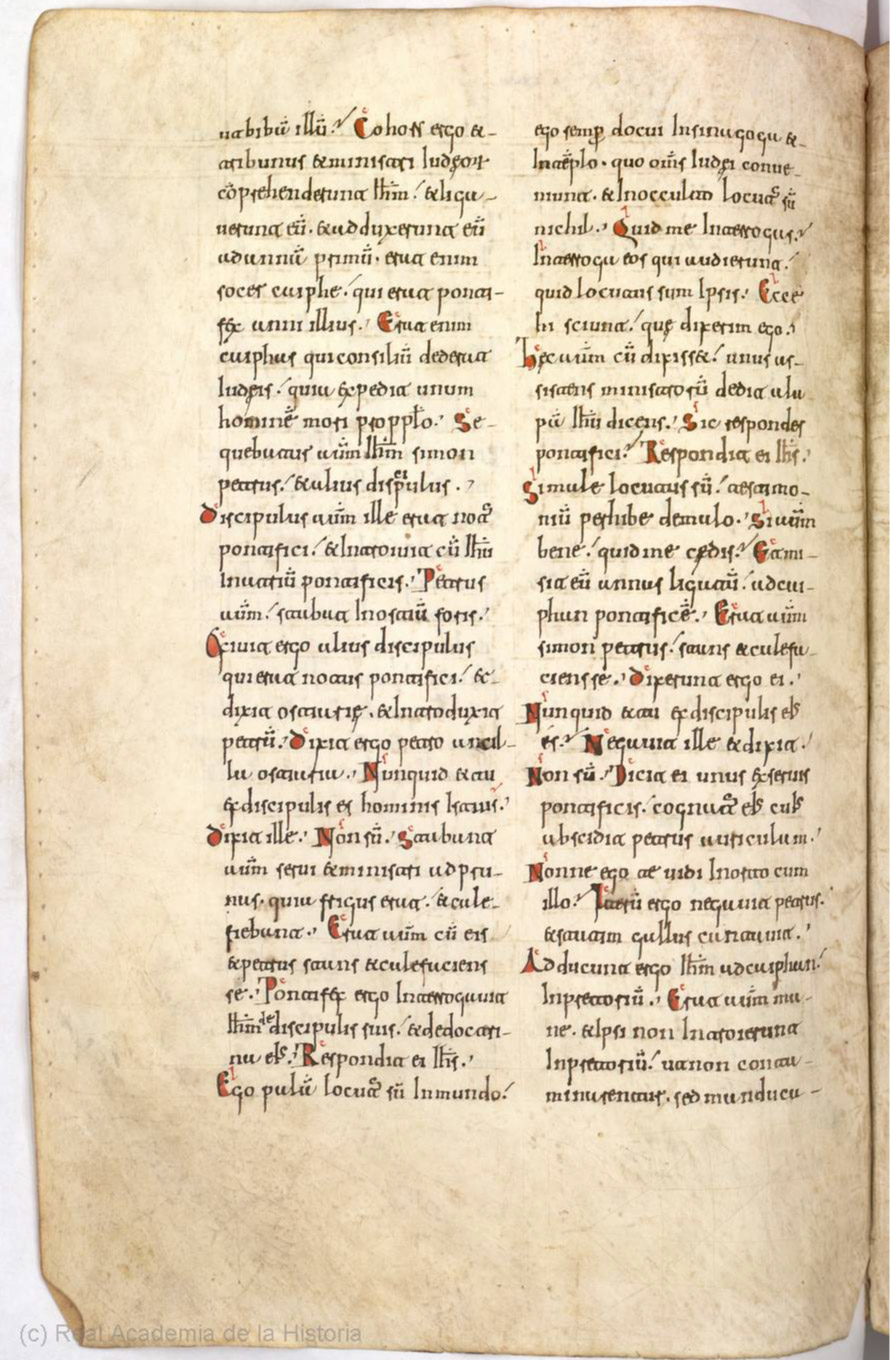 uabibū illū Cohors ergo et
tribunus et ministri iudeor
cōprehenderunt ihm et liga
uerunt eū. et adduxerunt eū
ad annā primū. erat enim
socer caiphe qui erat ponti-
fex anni illius. Erat enim
caiphas qui consiliū dederat
iudeis quia expedit unum
hominē mori pro pplo. Se-
quebatur aum ihm simon
petrus et alius discipulus.
Discipulus aum ille erat not
pontifici et introiuit cū ihu
in atriū pontificis. Petrus
aum stabat in ostiū foris.
Exiuit ergo alius discipulus
qui erat notus pontifici et
dixit ostiarie. et introduxit
petrū. Dixit ergo petro ancil-
la ostiaria. Nunquid et tu
ex discipulis es hominis istius.
Dixit ille. Non sū. Stabant
aum serui et ministri ad pru-
nas. quia frigus erat. et cale-
fiebant. Erat aum cū eis
et petrus stans et calefaciens
se. Pontifex ergo interrogauit
ihm de discipulis suis et de doctri-
na eis. Respondit ei ihs.
Ego palā locut sū in mundo
ego semp docui in sinagoga et
in tēplo. quo oms iudei conue-
niunt. et in occulto locut sū
nichil. Quid me interrogas
Interroga eos qui audierunt.
quid locutus sum ipsis. Ecce
hi sciunt que dixerim ego.
Hec aum cū dixisset unus as-
sistens ministrorū dedit ala
pā ihu dicens. Sic respondes
pontifici. Respondit ei ihs.
Si male locutus sū testimo-
niū perhibe de malo. Si aum
bene quid me cedis. Et mi-
sit eū annas ligatū ad cai-
phan pontificē. Erat aum
simon petrus stans et calefa-
ciens se. Dixerunt ergo ei.
Nunquid et tu ex discipulis eis
es. Negauit ille et dixit.
Non sū. Dicit ei unus ex seruis
pontificis cognat eis cuis
abscidit petrus auriculum.
Nonne ego te uidi in orto cum
illo. Iterū ergo negauit petrus.
et statim gallus cantauit.
Adducunt ergo ihm ad caiphan
in pretoriū. Erat aum ma-
ne. et ipsi non introierunt
in pretoriū ut non conta-
minarentur. sed manduca-
(c) Real Academia de la Historia